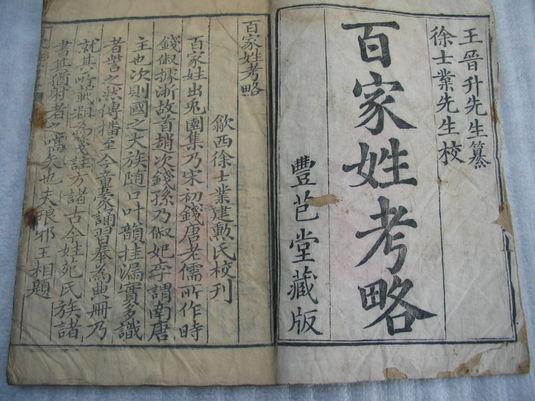 王晉升先生纂
徐士業先生校
百家姓考略
豐芑堂藏版
百家姓考略
歙西徐士業建勳氏校刊
百家姓出兔園集乃宋初錢唐老儒所作時
錢俶據浙故首趙次錢孫乃俶妃李謂南唐
主也次則國之大族隨口叶韻挂漏實多識
者訾之然傳播至今童蒙誦習奉為典冊乃
就其所載粗為箋註方諸古今姓苑氏族諸
書其猶射者之嚆矢也夫琅邪王相題